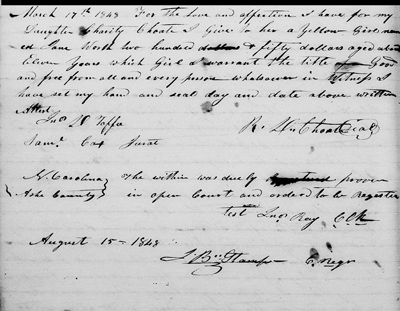 March 17th 1848 For the Love and affection I have for my
Daughter Charity Choate I Give to her a Yellow Girl nam
ed Jane Worth two hundred & fifty dollars aged about
Eleven Years which Girl I warrant the title Good
and free from all and every person whatsoever in Witness I
have set my hand and seal day and date above written
Attest
Jno D Jaffe R. Choate Seal
Saml Cox Jurat
N. Carolina } The within was duely proven
Ashe County } in open Court and ordered to be Register
test Jno Ray Clk
August 15 - 1848